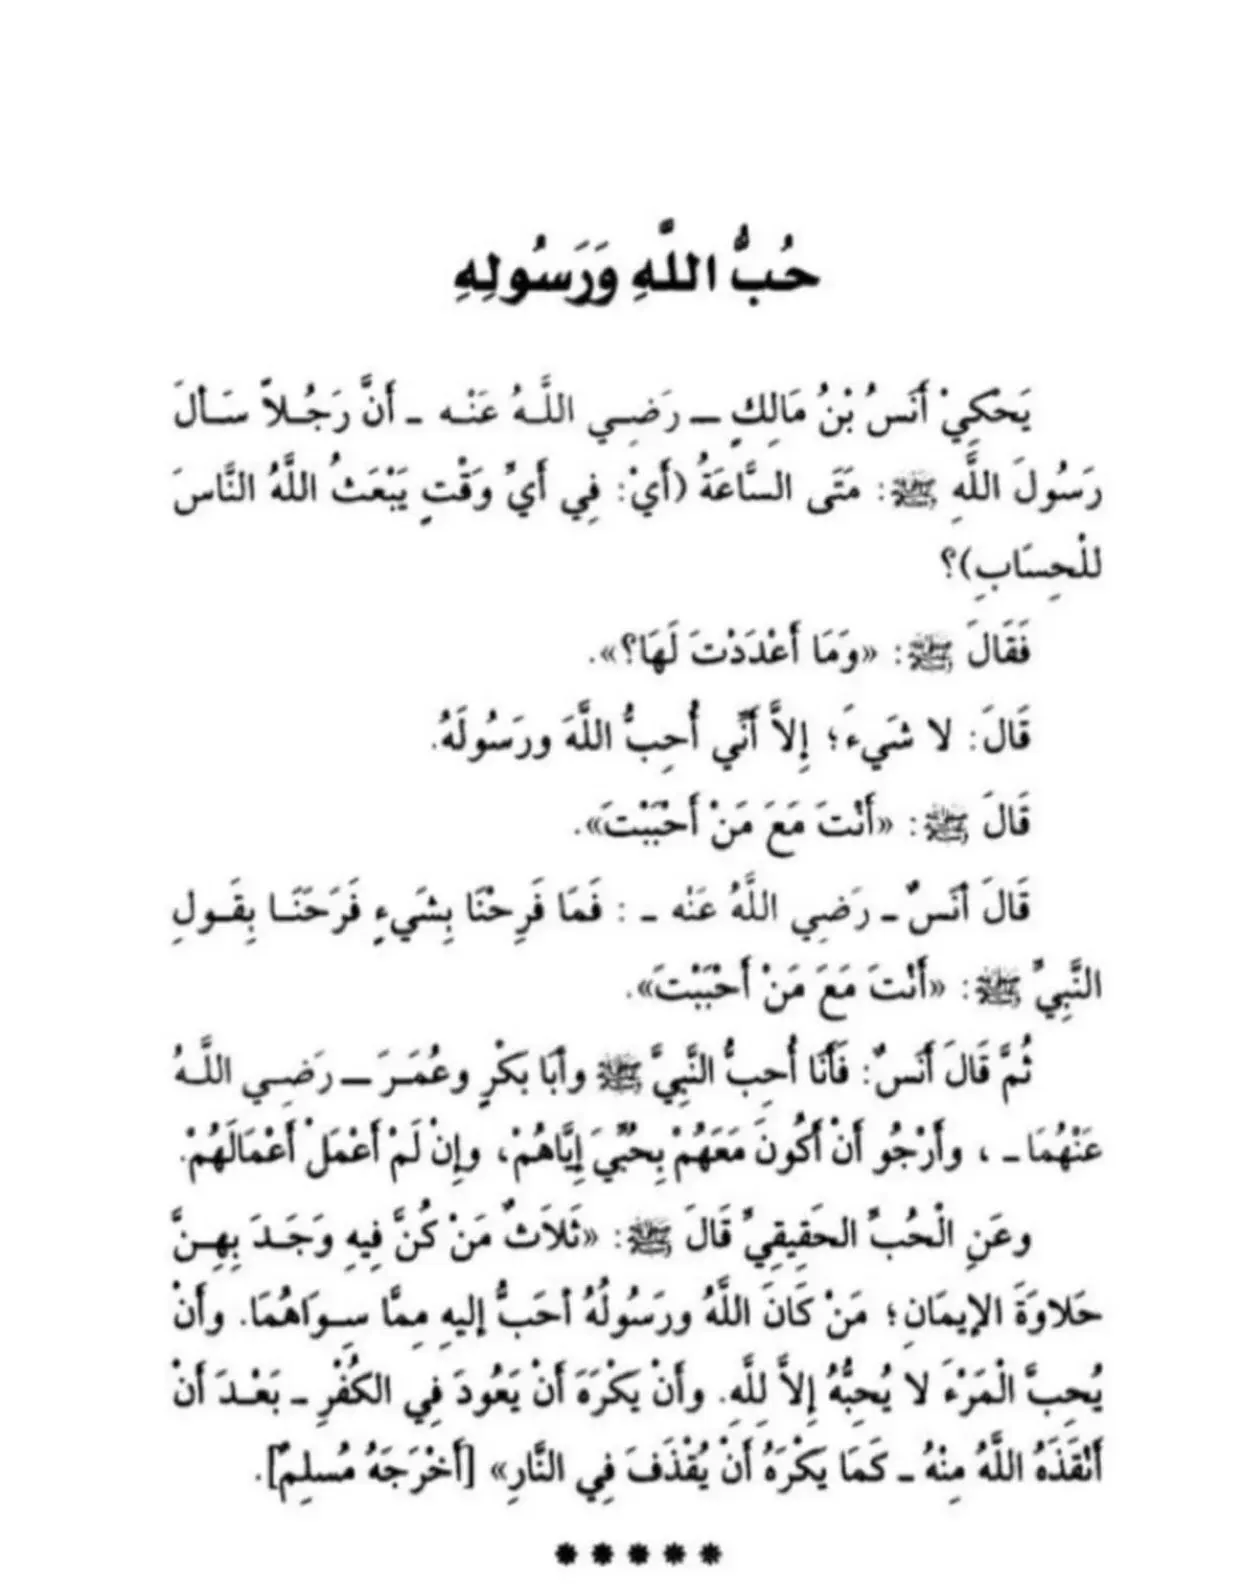 حُبُّ اللَّهِ وَرَسُولِهِ
يَحْكِيْ أَنَسُ بْنُ مَالِكٍ ـ رَضِي اللَّهُ عَنْه ـ أَنَّ رَجُلاً سَأَلَ
رَسُولَ اللَّهِ ﷺ: مَتَى السَّاعَةُ (أَيْ: فِي أَيِّ وَقْتٍ يَبْعَثُ اللَّهُ النَّاسَ
للْحِسَابِ)؟
فَقَالَ ﷺ: «وَمَا أَعْدَدْتَ لَهَا؟».
قَالَ: لا شَيءَ؛ إِلاَّ أَنِّي أُحِبُّ اللَّهَ ورَسُولَهُ.
قَالَ ﷺ: «أَنْتَ مَعَ مَنْ أَحْبَبْتَ».
قَالَ أَنَسٌ ـ رَضِي اللَّهُ عَنْه ـ : فَمَا فَرِحْنَا بِشَيءٍ فَرَحَنَا بِقَولِ
النَّبِيِّ ﷺ: «أَنْتَ مَعَ مَنْ أَحْبَبْتَ».
ثُمَّ قَالَ أَنَسٌ: فَأَنَا أُحِبُّ النَّبِيَّ ﷺ وأَبَا بَكْرٍ وعُمَرَ ـ رَضِي اللَّهُ
عَنْهُمَا ـ ، وأَرْجُو أَنْ أَكُونَ مَعَهُمْ بِحُبِّيَ إِيَّاهُمْ، وإِنْ لَمْ أَعْمَلْ أَعْمَالَهُمْ.
وعَنِ الْحُبِّ الحَقِيقِيِّ قَالَ ﷺ: «ثَلاَثٌ مَنْ كُنَّ فِيهِ وَجَدَ بِهِنَّ
حَلاوَةَ الإيمَانِ؛ مَنْ كَانَ اللَّهُ ورَسُولُهُ أحَبُّ إليهِ مِمَّا سِوَاهُمَا. وأَنْ
يُحِبَّ الْمَرْءَ لا يُحِبُّهُ إِلاَّ لِلَّهِ. وأَنْ يَكْرَهَ أَنْ يَعُودَ فِي الكُفْرِ ـ بَعْدَ أَنْ
أَنْقَذَهُ اللَّهُ مِنْهُ ـ كَمَا يَكْرَهُ أَنْ يُقْذَفَ فِي النَّارِ» [أَخْرَجَهُ مُسلِمٌ].